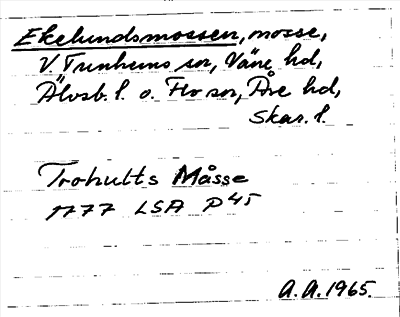 Ekelundsmossen, mosse,
V. Tunhems sn, Väne hd,
Älvsb. l. o. Flo sn, Åse hd,
Skar. l.
Trohults Måsse
1777 LSA P45
A.A. 1965.